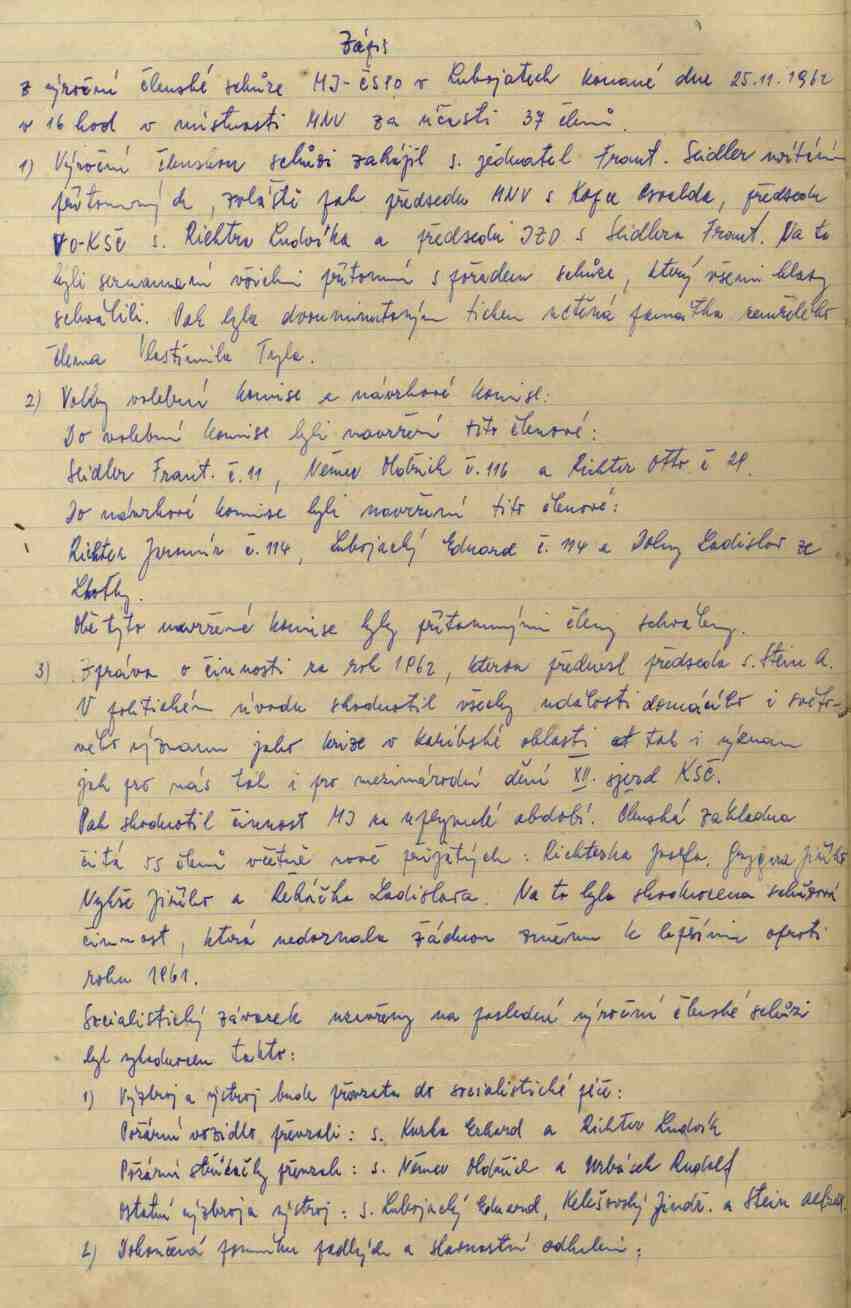 Zápis
z výroční členské schůze MJ-ČSPO v Lubojatech konané dne 25.11.1962
v 16 hod v místnosti MNV za účasti 37 členů.
1) Výroční členskou schůzi zahájil s. jednatel Frant. Seidler uvítáním
přítomných, zvláště pak předsedu MNV s Kofa Osvalda, předsedu
VO-KSČ s. Richtra Ludvíka a předsedu JZD s Seidlera Frant. Na to
byli seznámeni všichni přítomní s pořadem schůze, který všemi hlasy
schválili. Pak byla dvouminutovým tichem uctěná památka zemřelého
člena Vlastimila Tyla.
2) Volby volební komise a návrhové komise:
Do volební komise byli navrženi tito členové:
Seidler Frant. č. 11, Němec Oldřich č. 116 a Richter Otto č 21.
Do návrhové komise byli navrženi tito členové:
Richter Jaromír č. 114, Lubojacký Eduard č. 114 a Dolny Ladislav ze
Lhotky.
Obě tyto navržené komise byly přítomnými členy schváleny.
3) Zpráva o činnosti za rok 1962, kterou přednesl předseda s. Stein A.
V politickém úvodu zhodnotil všechy události domácího i světo-
vého významu jako krize v karibské oblasti tak i význam
jak pro nás tak i pro mezinárodní dění XII. sjezd KSČ.
Pak zhodnotil činnost MJ za uplynulé období. Členská základna
čítá 55 členů včetně nově přijatých: Richterka Josefa, Jiřího
Jiřího a Řeháčka Ladislava. Na to byla zhodnocena schůzová
činnost, která nedoznala žádnou změnu k lepšímu oproti
roku 1961.
Socialistický závazek uzavřeny na poslední výroční členské schůzi
byl vyhodnocen takto:
1) Výzbroj a výstroj bude převzata do socialistické péče:
Požární vozidlo převzali: s. Kurka Erhard a Richter Ludvík
Požární stříkačky převzali: s. Němec Oldřich a Urbásek Rudolf
Ostatní výzbroj a výstroj: s. Lubojacký Eduard, Kelešovský Jindř. a Stein
2) Dokončená pomníku padlých a slavnostní odhalení;